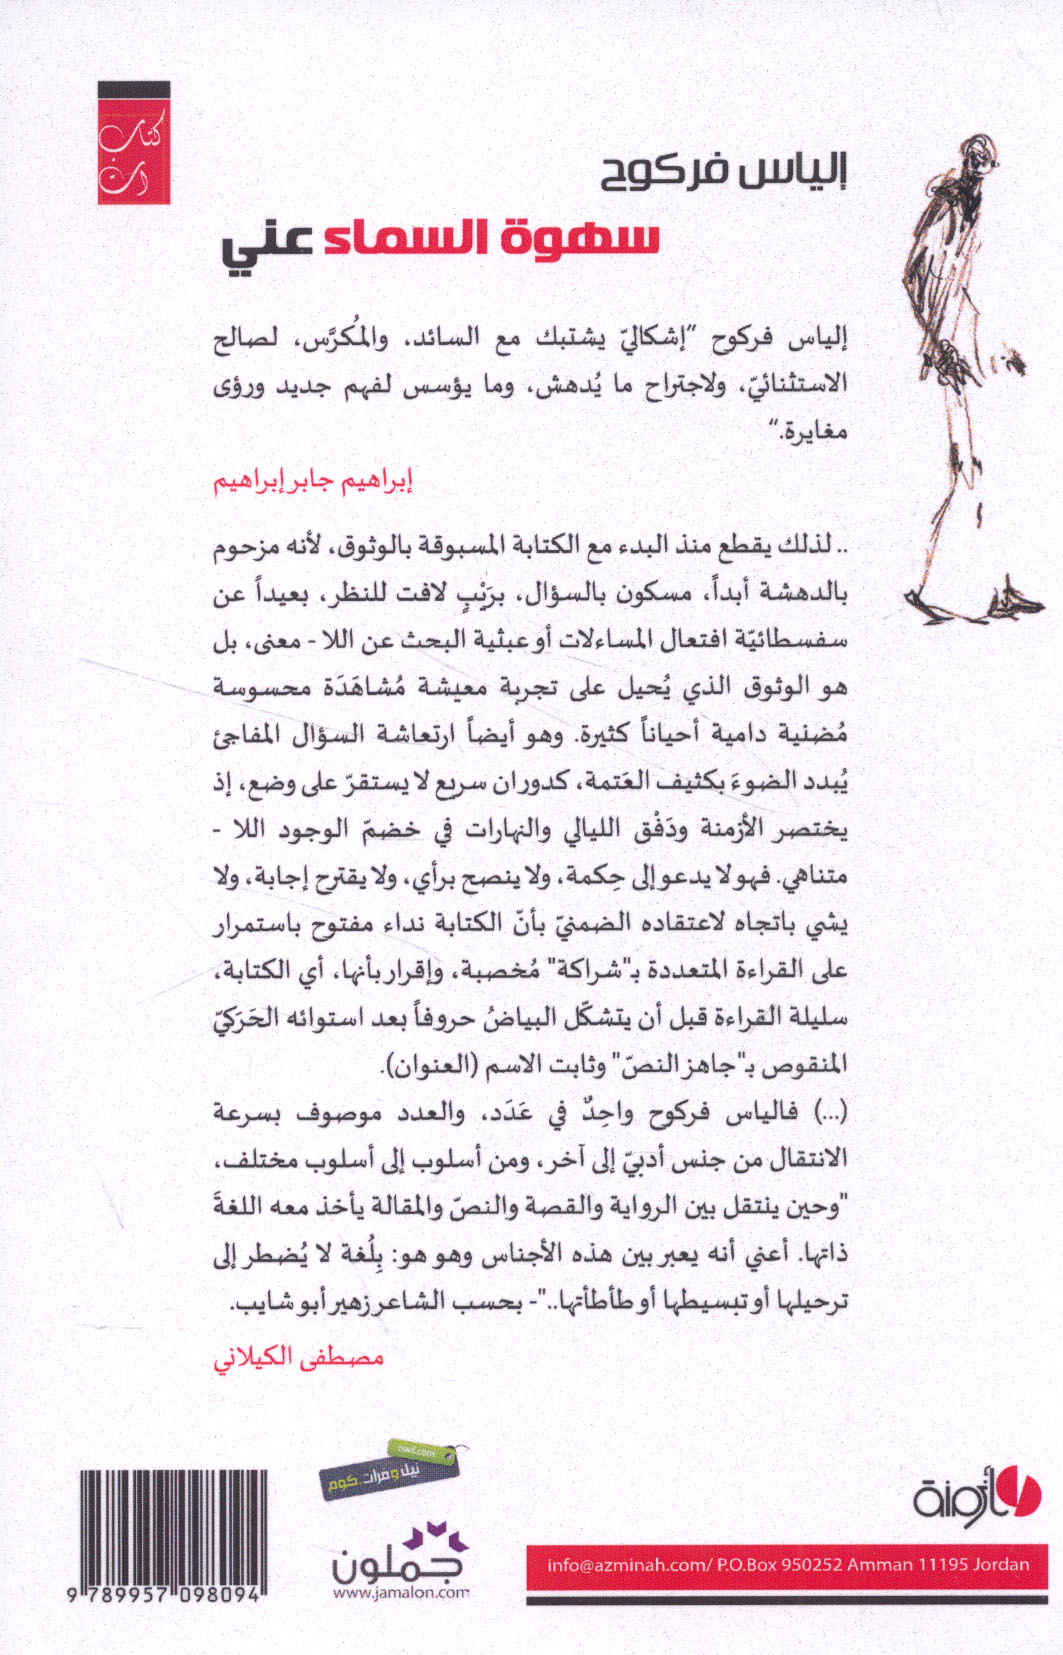 كتاب
ات
إلياس فركوح
سهوة السماء عني
إلياس فركوح "إشكاليّ يشتبك مع السائد، والمُكرَّس، لصالح
الاستثنائيّ، ولاجتراح ما يُدهش، وما يؤسس لفهم جديد ورؤى
مغايرة."
إبراهيم جابر إبراهيم
.. لذلك يقطع منذ البدء مع الكتابة المسبوقة بالوثوق، لأنه مزحوم
بالدهشة أبداً، مسكون بالسؤال، برَيْبٍ لافت للنظر، بعيداً عن
سفسطائيّة افتعال المساءلات أو عبثية البحث عن اللا - معنى، بل
هو الوثوق الذي يُحيل على تجربة معيشة مُشاهَدَة محسوسة
مُضنية دامية أحياناً كثيرة. وهو أيضاً ارتعاشة السؤال المفاجئ
يُبدد الضوءَ بكثيف العَتمة، كدوران سريع لا يستقرّ على وضع، إذ
يختصر الأزمنة ودَفْق الليالي والنهارات في خضمّ الوجود اللا -
متناهي. فهو لا يدعو إلى حِكمة، ولا ينصح برأي، ولا يقترح إجابة، ولا
يشي باتجاه لاعتقاده الضمنيّ بأنّ الكتابة نداء مفتوح باستمرار
على القراءة المتعددة بـ"شراكة" مُخصبة، وإقرار بأنها، أي الكتابة،
سليلة القراءة قبل أن يتشكّل البياضُ حروفاً بعد استوائه الحَرَكيّ
المنقوص بـ"جاهز النصّ" وثابت الاسم (العنوان).
(...) فالياس فركوح واحِدٌ في عَدَد، والعدد موصوف بسرعة
الانتقال من جنس أدبيّ إلى آخر، ومن أسلوب إلى أسلوب مختلف،
"وحين ينتقل بين الرواية والقصة والنصّ والمقالة يأخذ معه اللغةَ
ذاتها. أعني أنه يعبر بين هذه الأجناس وهو هو: بِلُغة لا يُضطر إلى
ترحيلها أو تبسيطها أو طأطأتها.."- بحسب الشاعر زهير أبو شايب.
مصطفى الكيلاني
nwf.com
نيل وفرات.كوم
أزمنة
جملون
www.jamalon.com
info@azminah.com/ P.O.Box 950252 Amman 11195 Jordan
9 789957 098094